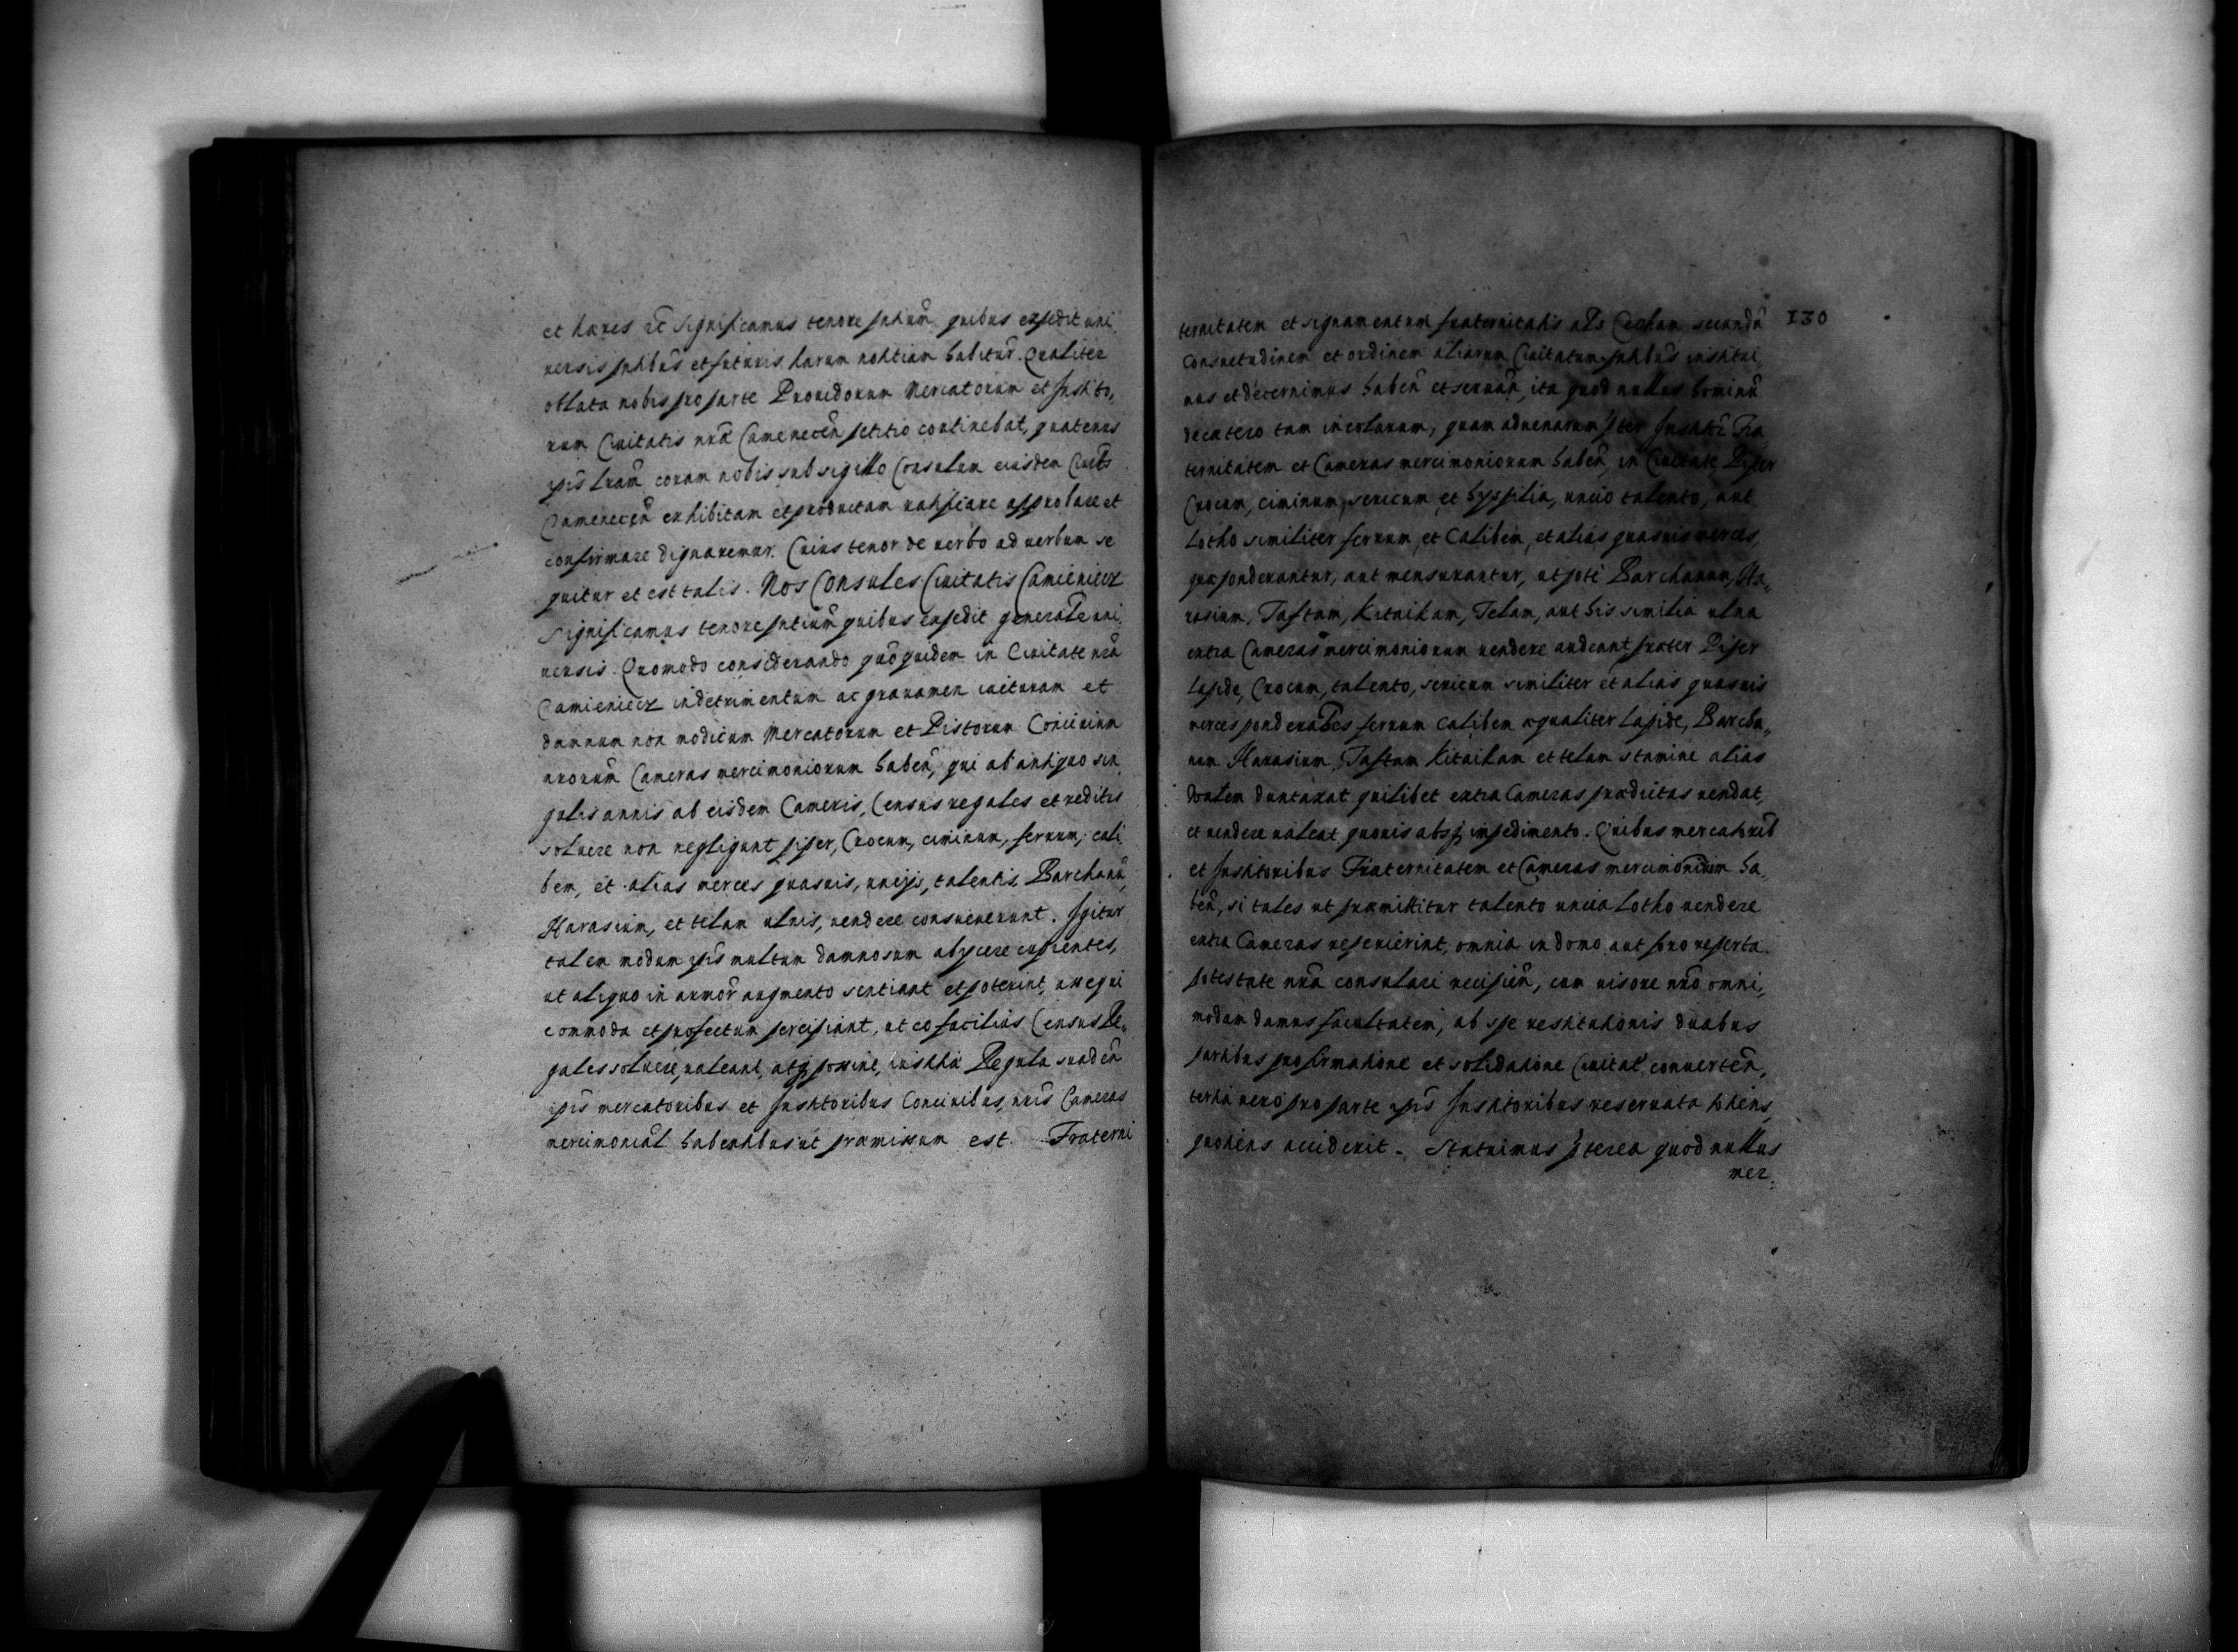 et hæres etc̄ significamus tenore pñtium̄ quibus expedit uni,
uersis pñtibūs et futuris harum notitiam habitur̄. Qualiter
oblata nobis pro parte Prouidorum Mercatorum et Instito,
rum Ciuitatis nr̄æ Camenecen̄ petitio continebat, quatenus
ip̄is lr̄am̄ coram nobis sub sigillo Consulum eiusdem Ciuit̄s
Camenecen̄ exhibitam et productam ratificare approbare et
confirmare dignaremur. Cuius tenor de uerbo ad uerbum se
quitur et est talis. Nos Consules Ciuitatis Camieniecz
Significamus tenore pñtium̄ quibus expedit general̄e uni,
uersis. Quomodo considerando quōquidem in Ciuitate nr̄a
Camieniecz in detrimentum ac grauamen et
damnum non modicum Mercatorum et Pistorum Conciuium
nrorum̄ Cameras mercimoniorum haben̄, qui ab antiquo sin
gulis annis ab eisdem Cameris, Census regales et reditus
soluere non negligunt piper, Crocum, ciminum, ferrum, cali
bem, et alias merces quasuis, uncijs, talentis, Barchanū,
Harasium, et telam ulnis, uendere consueuerunt. Igitur
talem modum ip̄is multum damnosum abijcere cupientes,
ut aliquo in augmento sentiant et poterint, assequi
commoda et profectum percipiant, ut eo facilius Census Re,,
gales soluere, ualeant, atq; possint, iustitiæ Regula suaden̄
ip̄is mercatoribus et Institoribus Conciuibus, nr̄is Cameras
mercimonial̄ habentibus ut præmissum est. Fraterni
ternitatem et signamentum fraternitatis al̄s Cecham secundū 130
Consuetudinem et ordinem aliarum Ciuitatum pñtibūs institui,
mus et decernimus haben̄ et seruan̄, ita quod nullus hominū
de cætero tam incolarum, quam aduenarum pter Instit̄ Fra
ternitatem et Cameras mercimoniorum haben̄ in Ciuitate Piper
Crocum, ciminum, sericum et hijs similia, uncio talento, aut
Lotho similiter ferrum, et Calibem, et alias quasuis merces,
quæ ponderantur, aut mensurantur, utpote Barchanum, Ha,,
rasium, Taftam, Kitaikam, Telam, aut his similia ulna
extra Cameras mercimoniorum uendere audeant præter Piper
lapide, Crocum, talento, sericum similiter et alias quasuis
merces ponderab̄les ferrum Calibem æqualiter lapide, Barcha,,
num Harasium, Taftam Kitaikam et telam stamine alias
duntaxat quilibet extra Cameras prædictas uendat,
et uendere ualeat quouis absq; impedimento. Quibus mercatorib̄
et Institoribus Fraternitatem et Cameras mercimonium ha,
ben̄, si tales ut præmittitur talento uncia Lotho uendere
extra Cameras repererint, omnia in domo aut foro reperta
potestate nr̄a consulari recipien̄, cum uisore nr̄o omni,
modam damus facultatem, ab spe restitutionis duabus
partibus pro firmatione et solidatione Ciuitat̄ conuerten̄,
tertia uero pro parte ip̄is Institoribus reseruata toties
quotiens acciderit. Statuimus p̄terea quod nullus
mer,